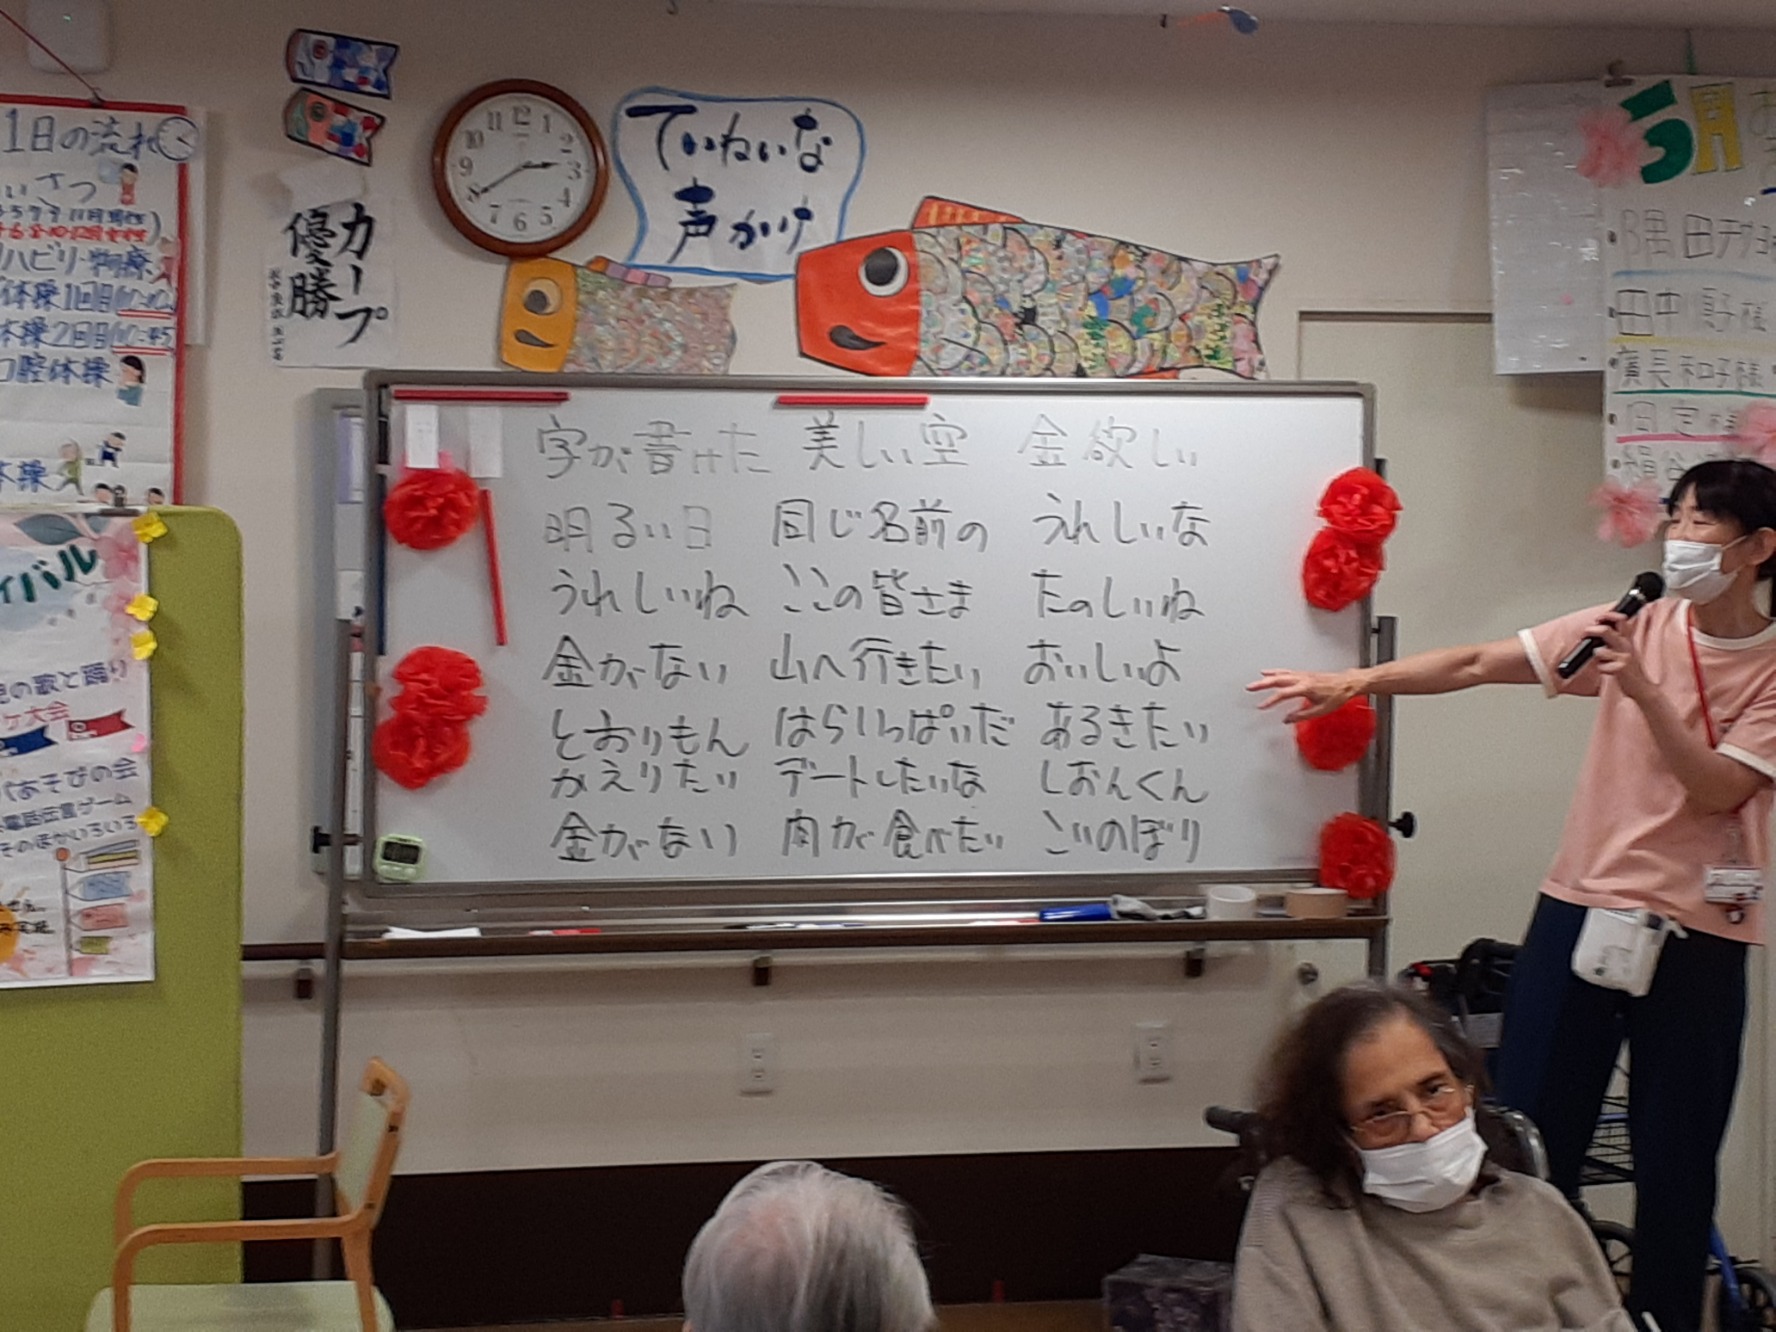 1日の流れ
体操1回目
体操2回目
口腔体操
体操
カープ
優勝
12
1
2
3
4
5
6
7
8
9
10
11
ていねいな
声かけ
字が書けた 美しい空 金欲しい
明るい日 同じ名前の うれしいな
うれしいね ここの皆さま たのしいね
金がない 山へ行きたい おいしいよ
とおりもん はらいっぱいだ あるきたい
かえりたい デートしたいな しおんくん
金がない 肉が食べたい こいのぼり
5月
田中順子様
廣長和子様
の歌と踊り
大会
あそびの会
電話伝言ゲーム
そのほかいろいろ